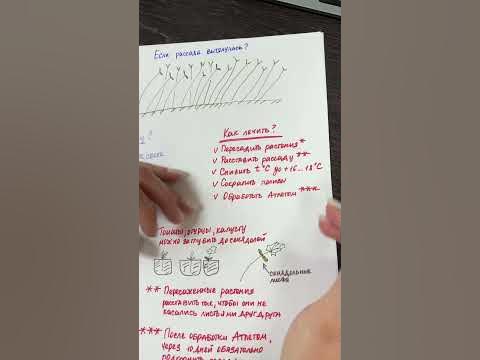 Если рассада вытянулась?
Как лечить?
✓ Пересадить растения *
✓ Расставить рассаду **
✓ Снизить t°C до +16...18°C
✓ Сократить полив
✓ Обработать Атлетом ***
Томаты, огурцы, капусту
можно заглубить до семядолей
семядольные
листья
** Пересаженные растения
расставить так, чтобы они не
касались листьями друг друга
*** После обработки Атлетом,
через 10 дней обязательно